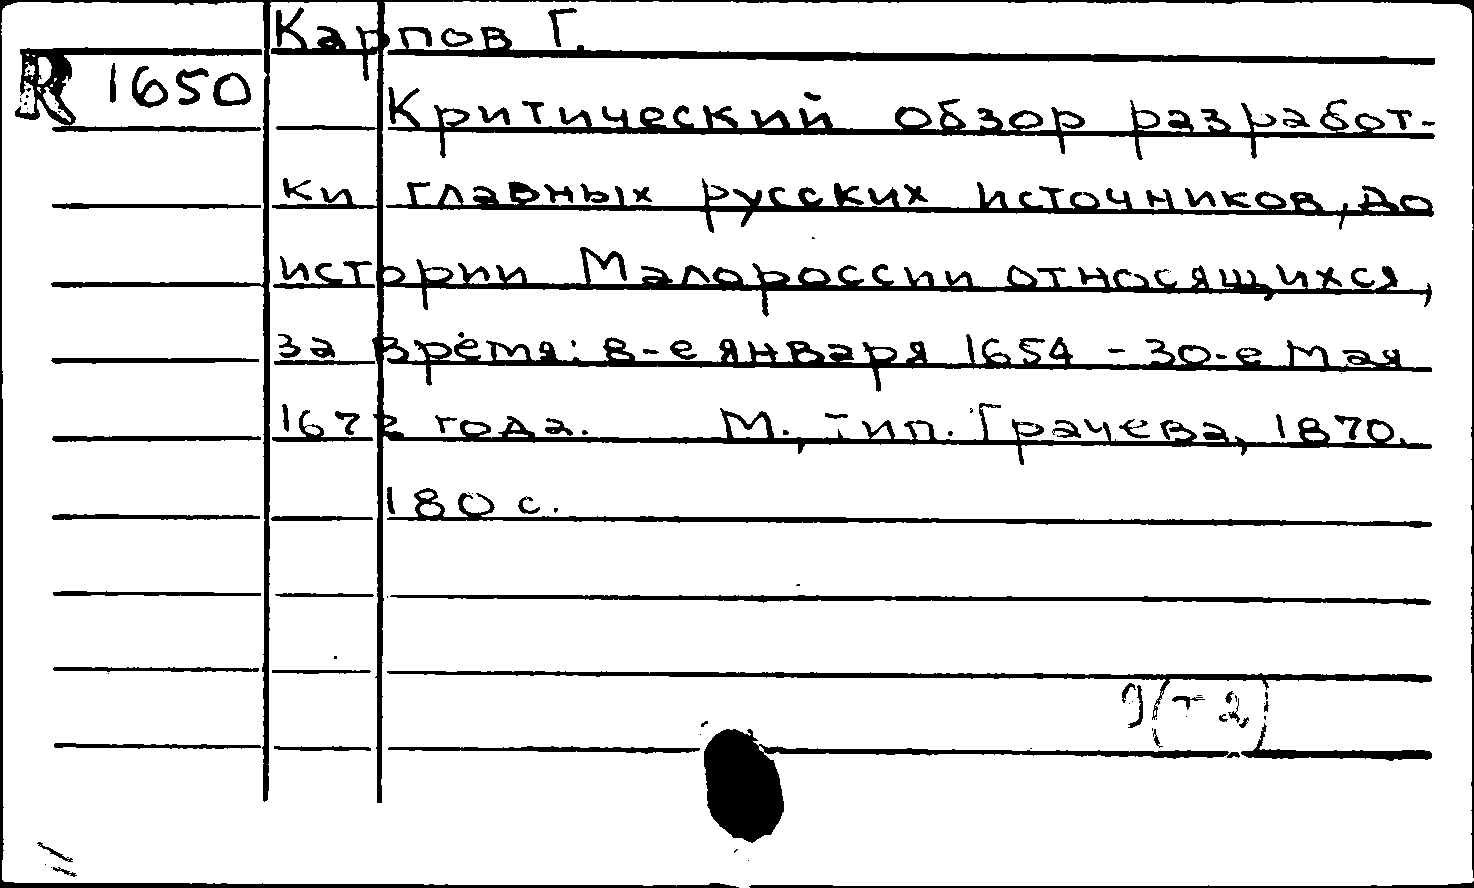 Карпов Г.
R 1650
Критический обзор разработ-
ки главных русских источников, до
истории Малороссии относящихся,
за время: 8-е января 1654 - 30-е мая
1672 года. М., тип. Грачева, 1870.
180 с.
9(т2)